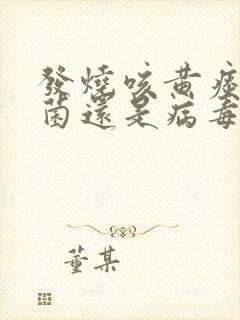 發燒咳黃痰
菌還是病毒
董某